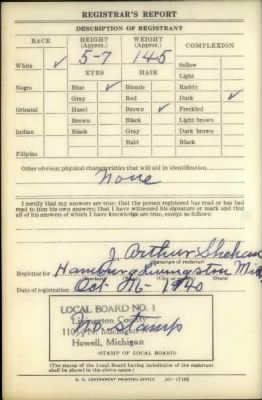 REGISTRAR'S REPORT
DESCRIPTION OF REGISTRANT
RACE HEIGHT (Approx.) WEIGHT (Approx.) COMPLEXION
White ✓ 5-7 145 Sallow
EYES HAIR Light
Negro Blue ✓ Blonde Ruddy
Gray Red Dark ✓
Oriental Hazel Brown ✓ Freckled
Brown Black Light brown
Indian Black Gray Dark brown
Bald Black
Filipino
Other obvious physical characteristics that will aid in identification
None
I certify that my answers are true; that the person registered has read or has had
read to him his own answers; that I have witnessed his signature or mark and that
all of his answers of which I have knowledge are true, except as follows:
J. Arthur
(Signature of registrar)
Registrar for Hamburg Livingston Mich
(City or county) (State)
Date of registration Oct-16-1940
LOCAL BOARD NO. 1
Livingston County
No stamp
N. Michigan
Howell, Michigan
(STAMP OF LOCAL BOARD)
(The stamp of the Local Board having jurisdiction of the registrant
shall be placed in the above space.)
U. S. GOVERNMENT PRINTING OFFICE